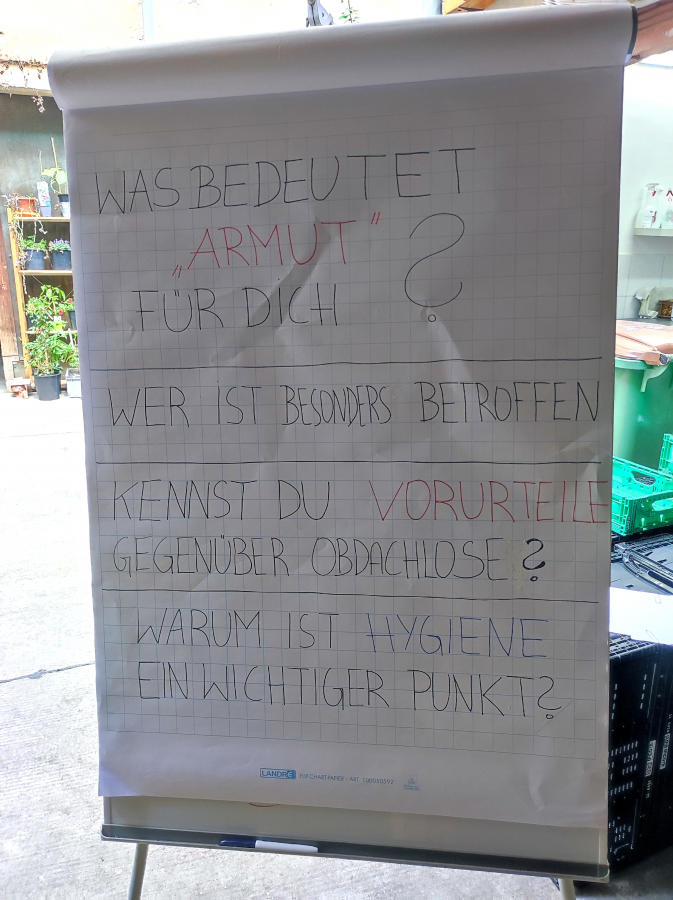 WAS BEDEUTET
„ARMUT" ?
FÜR DICH
WER IST BESONDERS BETROFFEN
KENNST DU VORURTEILE
GEGENÜBER OBDACHLOSE?
WARUM IST HYGIENE
EIN WICHTIGER PUNKT?
LANDRÉ FLIPCHART-PAPIER - ART. 100050592